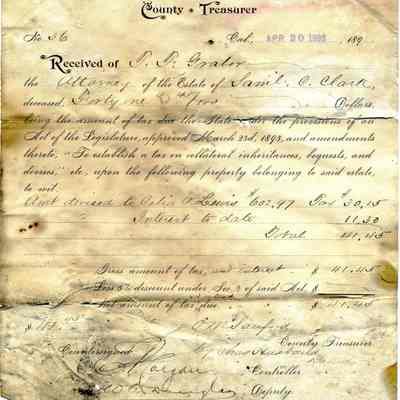 County Treasurer
No 56 Cal. APR 20 189
Received of
the Attorney of the Estate of Saml. C. Clark,
deceased, Forty one Dollars,
being the amount of tax due the State under the provisions of an
Act of the Legislature, approved March 23d, 1893, and amendments
thereto, "To establish a tax on collateral inheritances, bequests, and
devises," etc., upon the following property belonging to said estate,
to wit:
Amt devised to Celia Lewis $602.97 Tax 30.15
Interest to date 11.30
Total 41.45
Gross amount of tax, and interest $ 41.45
Less 5% discount under Sec. of said Act $
Net amount of tax due $ 41.45
$
County Treasurer
Countersigned
Controller
Deputy